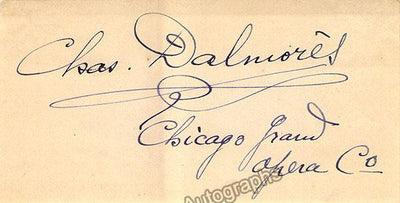 Chas. Dalmorès
Chicago Grand
Opera Co
Autographs